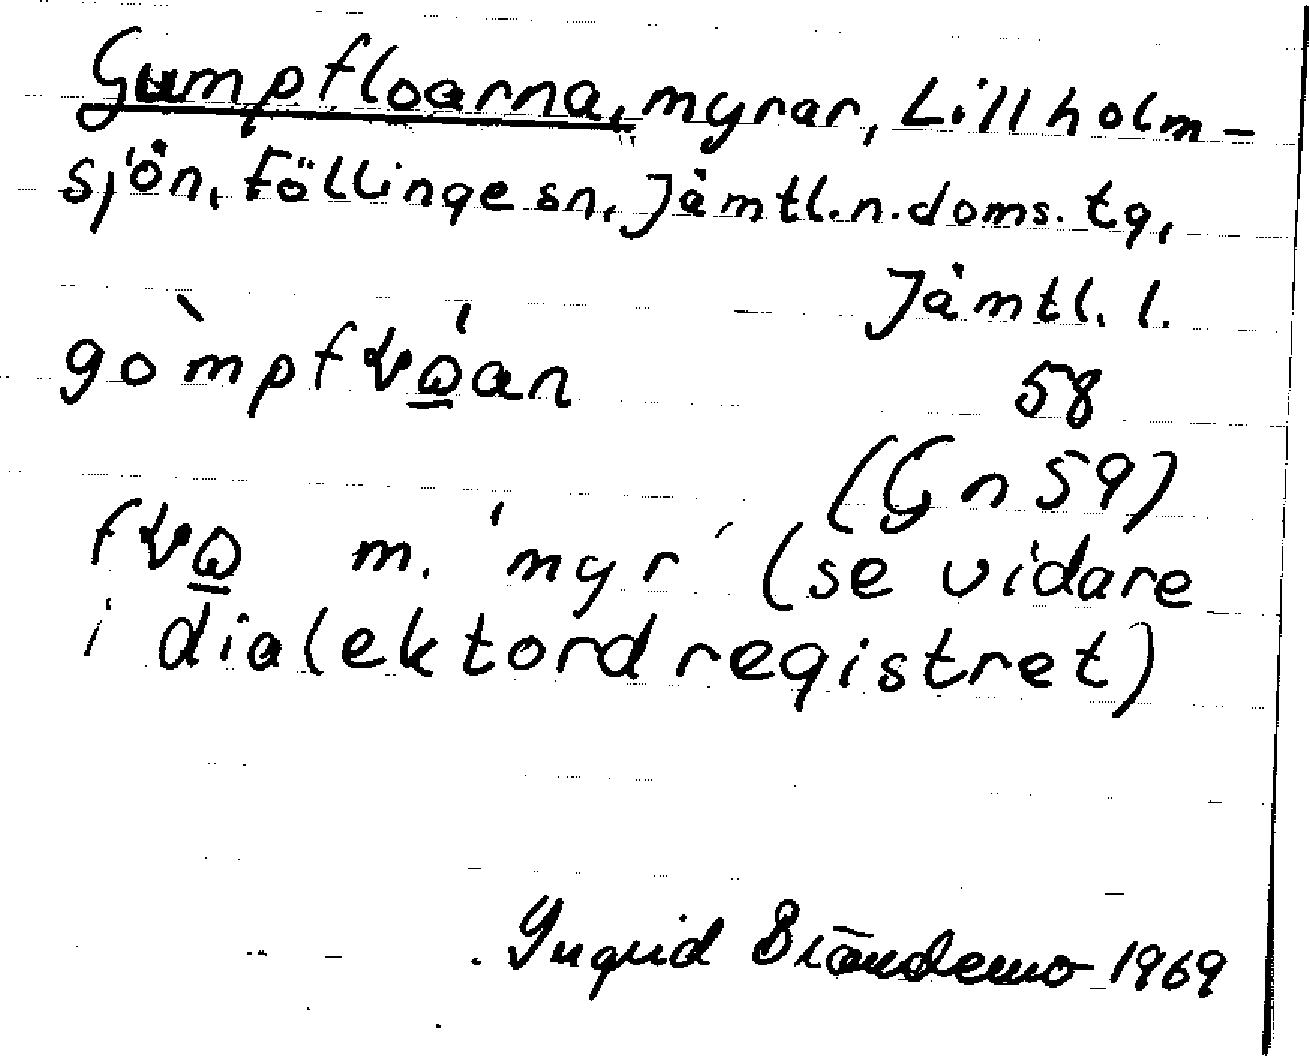 Gumpfloarna, myrar, Lillholm-
sjön, Föllinge sn, Jämtl.n.doms. tg,
Jämtl. l.
58
(Gn 59)
m. 'myr' (se vidare
i dialektordregistret)
Ingrid Brändemo 1969